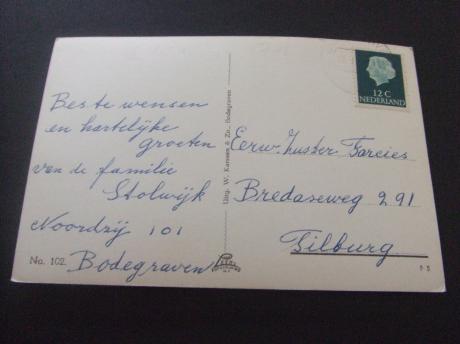 Beste wensen
en hartelijke
groeten
van de familie
Stolwijk
Noordzij 101
Bodegraven
No. 102.
Uitg. W. Karssen & Zn., Bodegraven
12 C
NEDERLAND
Eerw. Zuster Farcies
Bredaseweg 291
Tilburg